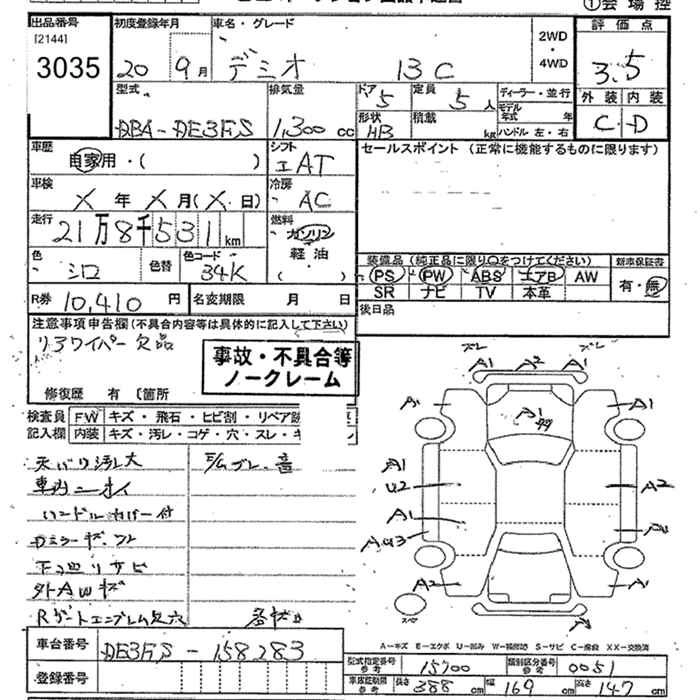 ①会場控
出品番号 初度登録年月 車名・グレード 評価点
[2144]
3035 20 9月 デミオ 13C 2WD・4WD 3.5
型式 排気量 ドア 定員 ディーラー・並行 外装 内装
DBA-DE3FS 1,300 cc 5 5人 モデル年式 年 C D
形状 積載
HB kg ハンドル 左・右
車歴 シフト セールスポイント(正常に機能するものに限ります)
自家用・( ) AT
車検 冷房
X年X月(X日) AC
走行 燃料
21万8千531km ガソリン
軽油
( )
色 色替 色コード 装備品(純正品に限り○をつけてください) 新車保証書
シロ 34K PS PW ABS エアB AW 有・無
SR ナビ TV 本革
R券 10,410円 名変期限 月 日 後日品
注意事項申告欄(不具合内容等は具体的に記入して下さい)
リアワイパー欠品
事故・不具合等
ノークレーム
修復歴 有 〔箇所
検査員 FW キズ・飛石・ヒビ割・リペア
記入欄 内装 キズ・汚レ・コゲ・穴・スレ・キ
天バリ汚レ大
車内ニオイ
ハンドルカバー付
下廻リサビ
外AWキズ
Rゲートエンブレム欠穴
A1 A2 A1
A1 A1 A1
A1
U2 A2
A1
A2 A1
A-キズ E-エクボ U-凹み W-補修跡 S-サビ C-腐蝕 XX-交換済
車台番号 DE3FS-158283
登録番号
型式指定番号 参考 15700 類別区分番号 参考 0051
車庫証明用 参考 長さ 388cm 幅 169cm 高さ 147cm